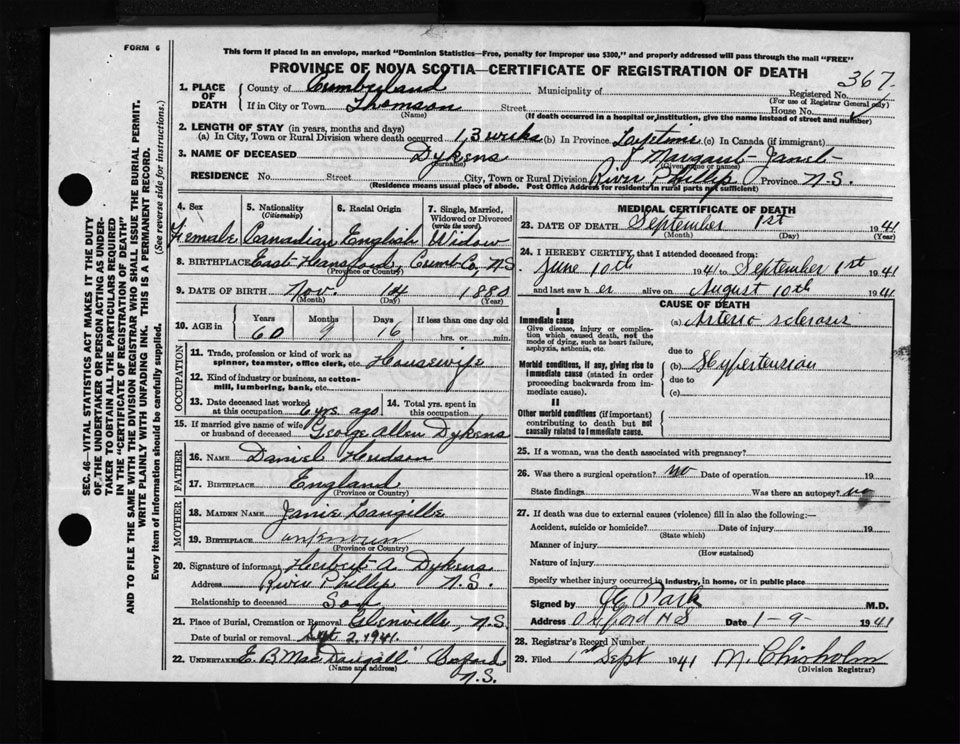 FORM 6
This form if placed in an envelope, marked "Dominion Statistics—Free, penalty for improper use $300," and properly addressed will pass through the mail "FREE"
PROVINCE OF NOVA SCOTIA—CERTIFICATE OF REGISTRATION OF DEATH
367
1. PLACE OF DEATH
County of Cumberland Municipality of Registered No.
(For use of Registrar General only)
If in City or Town Thomson Street House No.
(Name) (If death occurred in a hospital or institution, give the name instead of street and number)
2. LENGTH OF STAY (in years, months and days)
(a) In City, Town or Rural Division where death occurred 13 weeks (b) In Province Lifetime (c) In Canada (if immigrant)
3. NAME OF DECEASED Dykens Margaret Janet
(Surname) (Given name or names)
RESIDENCE No. Street City, Town or Rural Division River Phillip Province N.S.
(Residence means usual place of abode. Post Office Address for residents in rural parts not sufficient)
4. Sex 5. Nationality (Citizenship) 6. Racial Origin 7. Single, Married, Widowed or Divorced (write the word)
Female Canadian English Widow
8. BIRTHPLACE East Hansford, Cumb. Co., N.S.
(Province or Country)
9. DATE OF BIRTH Nov. 14 1880
(Month) (Day) (Year)
10. AGE in Years Months Days If less than one day old
60 9 16 hrs. or min.
OCCUPATION
11. Trade, profession or kind of work as spinner, teamster, office clerk, etc. Housewife
12. Kind of industry or business, as cotton-mill, lumbering, bank, etc.
13. Date deceased last worked at this occupation 6 yrs. ago 14. Total yrs. spent in this occupation
15. If married give name of wife or husband of deceased George Allen Dykens
FATHER
16. NAME Daniel Hudson
17. BIRTHPLACE England
(Province or Country)
MOTHER
18. MAIDEN NAME Janie Langille
19. BIRTHPLACE unknown
(Province or Country)
20. Signature of informant Herbert A. Dykens
Address River Phillip N.S.
Relationship to deceased Son
21. Place of Burial, Cremation or Removal Glenville, N.S.
Date of burial or removal Sept 2, 1941.
22. UNDERTAKER E. B. MacDougall Oxford N.S.
(Name and address)
MEDICAL CERTIFICATE OF DEATH
23. DATE OF DEATH September 1st 1941
(Month) (Day) (Year)
24. I HEREBY CERTIFY, that I attended deceased from:
June 10th 1941 to September 1st 1941
and last saw her alive on August 10th 1941
CAUSE OF DEATH
I
Immediate cause (a) Arterio sclerosis
Give disease, injury or complication which caused death, not the mode of dying, such as heart failure, asphyxia, asthenia, etc.
due to
Morbid conditions, if any, giving rise to immediate cause (stated in order proceeding backwards from immediate cause).
(b) Hypertension
due to
(c)
II
Other morbid conditions (if important) contributing to death but not causally related to immediate cause.
25. If a woman, was the death associated with pregnancy?
26. Was there a surgical operation? no Date of operation 19
State findings Was there an autopsy? no
27. If death was due to external causes (violence) fill in also the following:—
Accident, suicide or homicide? Date of injury 19
(State which)
Manner of injury
(How sustained)
Nature of injury
Specify whether injury occurred in industry, in home, or in public place
Signed by Park M.D.
Address Oxford N S Date 1-9- 1941
28. Registrar's Record Number
29. Filed 1st Sept 1941 M. Chisholm
(Division Registrar)
SEC. 46—VITAL STATISTICS ACT MAKES IT THE DUTY
OF THE UNDERTAKER OR PERSON ACTING AS UNDERTAKER TO OBTAIN ALL THE PARTICULARS REQUIRED
IN THE "CERTIFICATE OF REGISTRATION OF DEATH"
AND TO FILE THE SAME WITH THE DIVISION REGISTRAR WHO SHALL ISSUE THE BURIAL PERMIT.
WRITE PLAINLY WITH UNFADING INK. THIS IS A PERMANENT RECORD.
Every item of information should be carefully supplied. (See reverse side for instructions.)